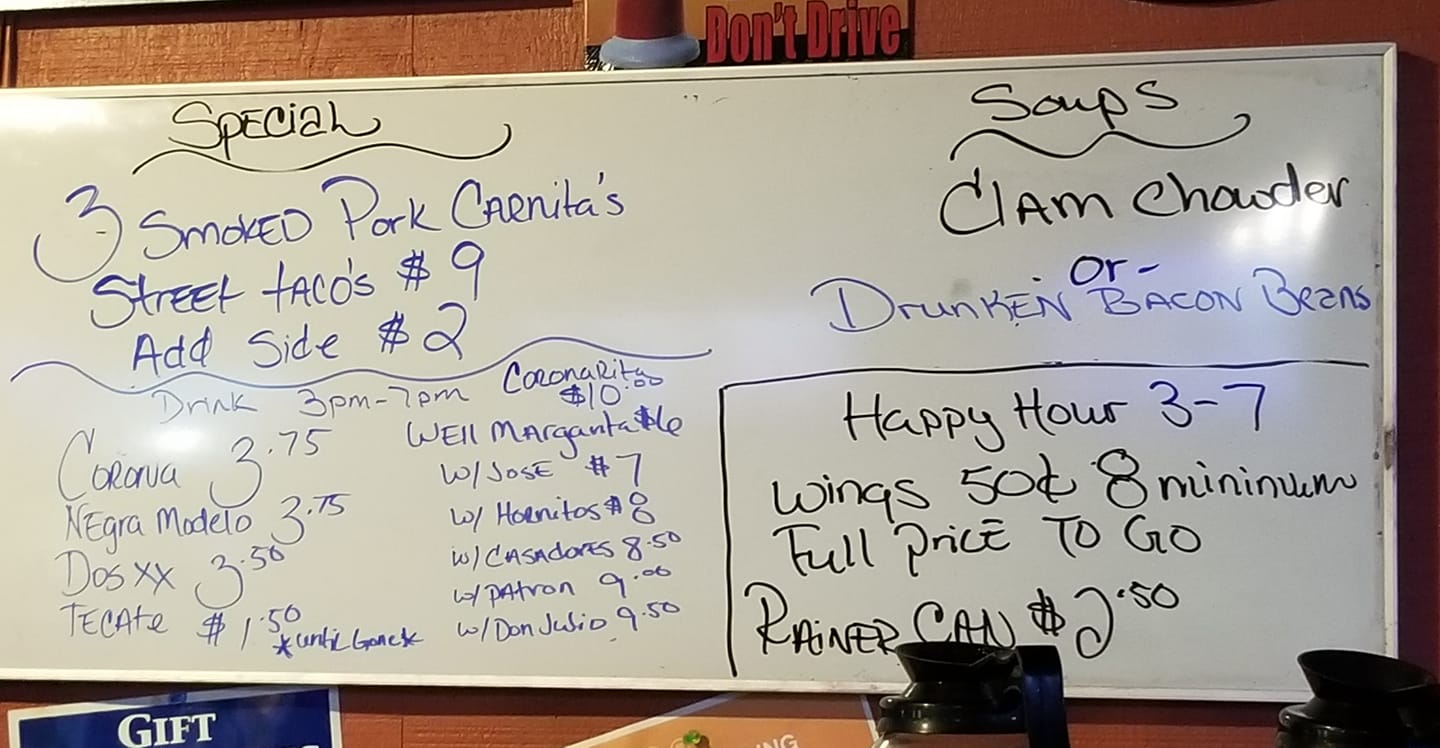 Don't Drive
Special
3 Smoked Pork Carnita's
Street taco's $9
Add Side $2
Drink 3pm-7pm
Corona 3.75
Negra Modelo 3.75
Dos XX 3.50
Tecate $1.50
*until gone*
CoronaRita
$10.00
Well Margarita
w/ Jose $7
w/ Hornitos $8
w/ Casadores 8.50
w/ Patron 9.00
w/ Don Julio 9.50
Soups
Clam Chowder
or-
Drunken Bacon Beans
Happy Hour 3-7
Wings 50¢ 8 mininum
Full Price To Go
Rainer Can $2.50
GIFT
NG